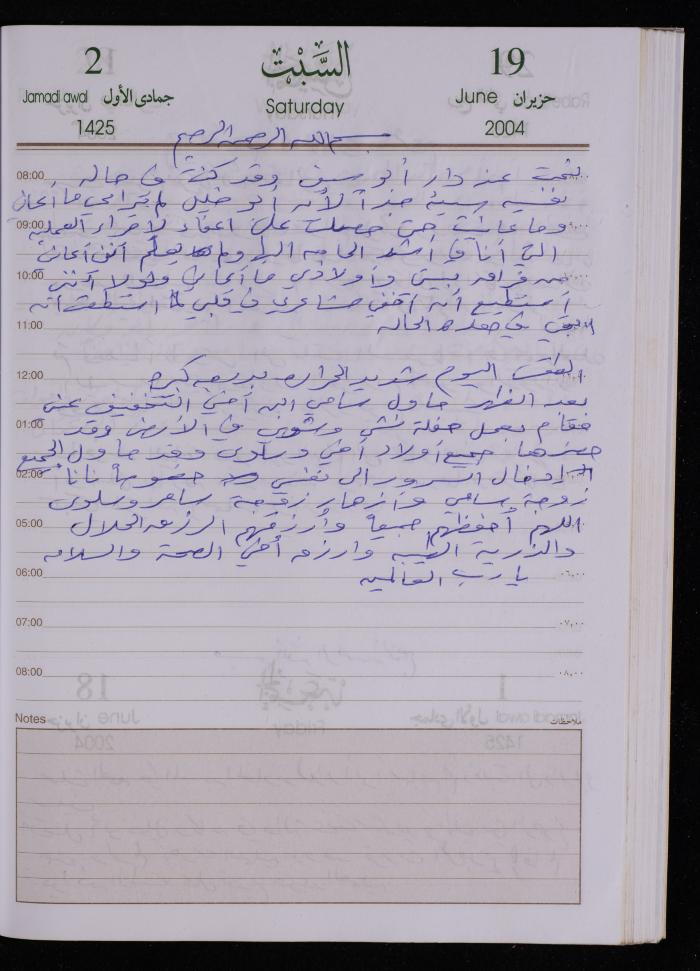 2 السَّبْت 19
Jamadi awal جمادى الأول Saturday June حزيران
1425 2004
بسم الله الرحمن الرحيم
08:00 نمت عند دار أبو سيف وقد كنت في حاله
نفسيه سيئة جداً لأن أبو خليل لم يجرا مي ما أعاني
09:00 وما عانيت حتى حصلت على اعفاء لإجراء العمليه
التي أنا في أشد الحاجه اليها ولم يعلم أنني أعاني
10:00 من فراق بيتي وأولادي ما أعاني ولولا أنني
أستطيع أن أخفي مشاعري في قلبي لما استطعت أن
11:00 ابقى في هذه الحاله
12:00 الطقس اليوم شديد الحراره بدرجه كبيره
بعد الظهر حاول سامي ابن أخي التخفيف عني
01:00 فقام بعمل حفلة نشي وشوي في الأرض وقد
حضرها جميع أولاد أخي وسلوى وقد حاول الجميع
02:00 إدخال السرور الى نفسي خصوصاً نانا
زوجة سامي وأزهار زوجة سامر وسلوى
05:00 اللهم أحفظهم جميعاً وأرزقهم الرزق الحلال
والذرية الطيبه وارزق أخي الصحة والسلامه
06:00 يا رب العالمين ٠٦,٠٠
07:00 ٠٧,٠٠
08:00 ٠٨,٠٠
Notes ملاحظات